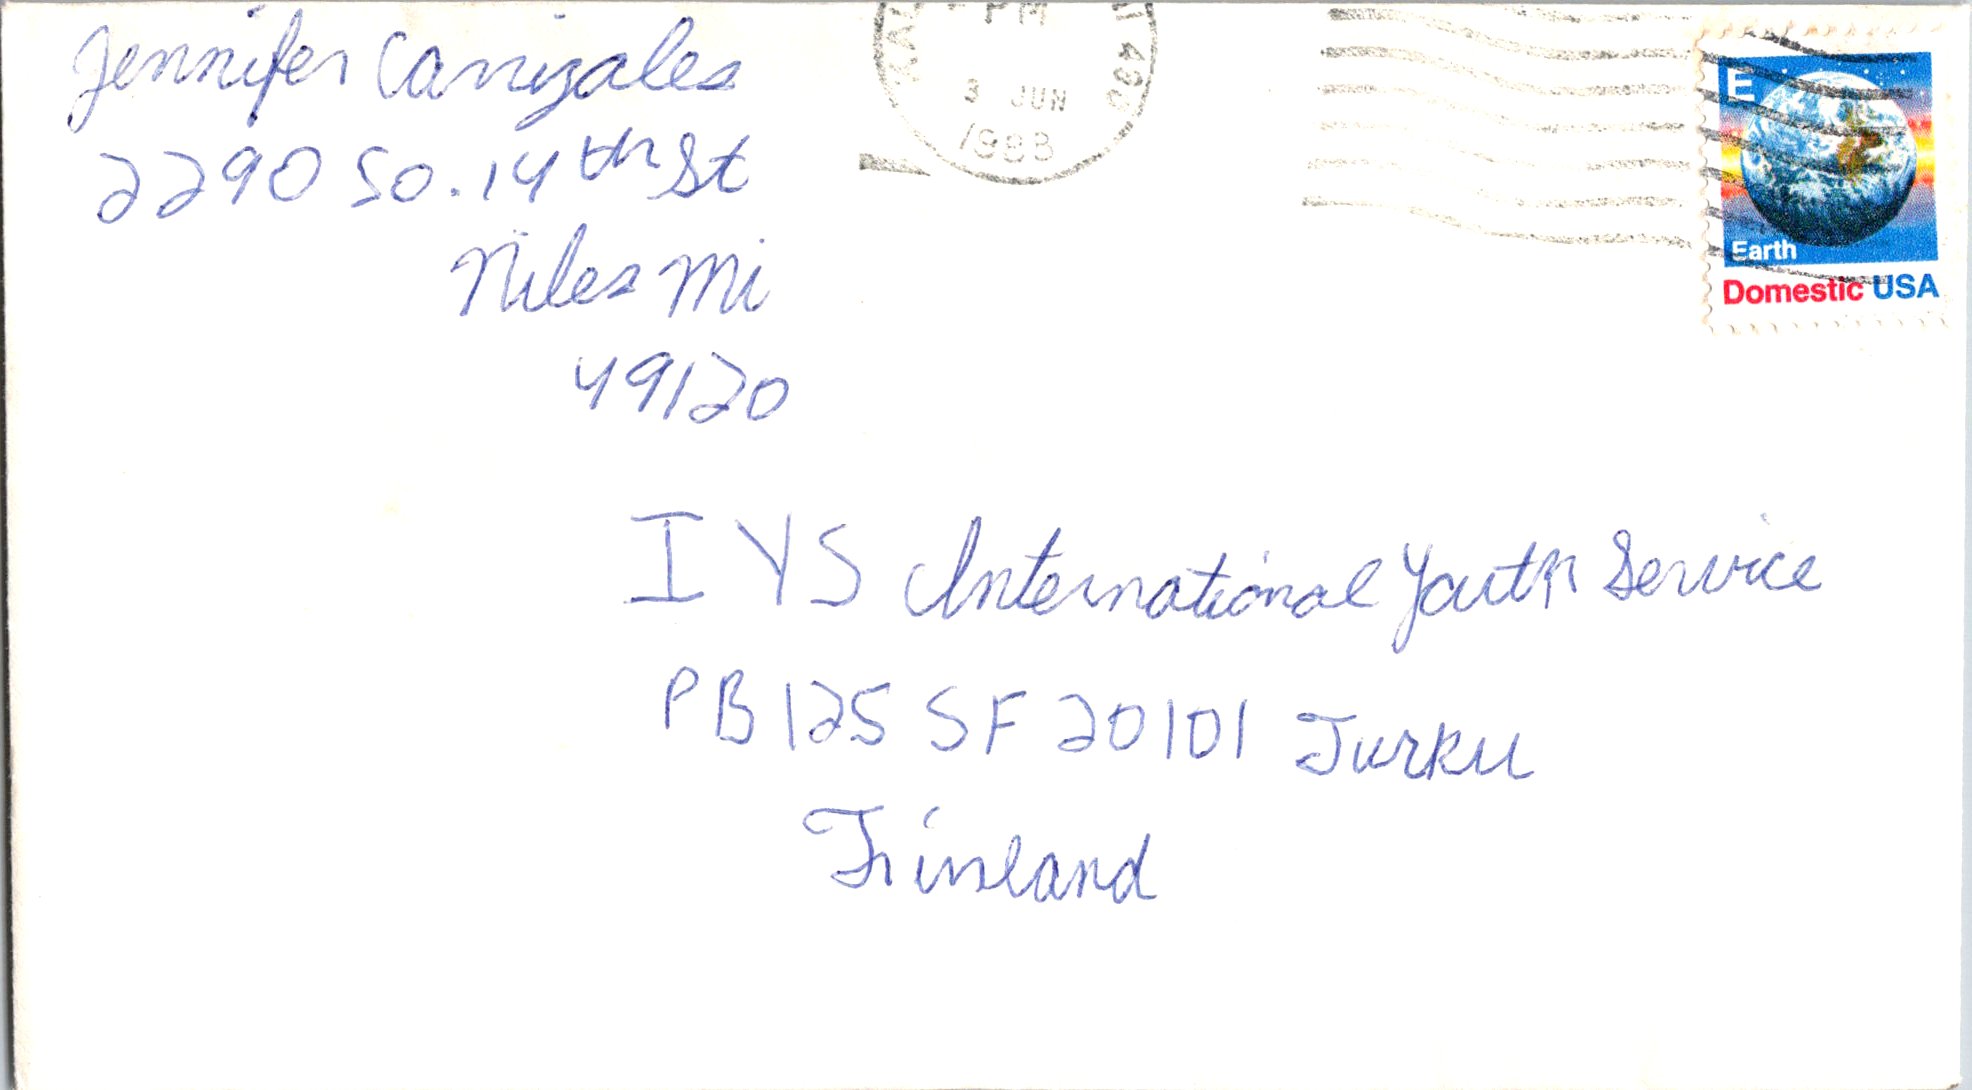 Jennifer Canizales
2290 So. 14th St
Niles Mi
49120
PM
MI 490
3 JUN
1988
E
Earth
Domestic USA
I Y S International Youth Service
PB 125 SF 20101 Turku
Finland